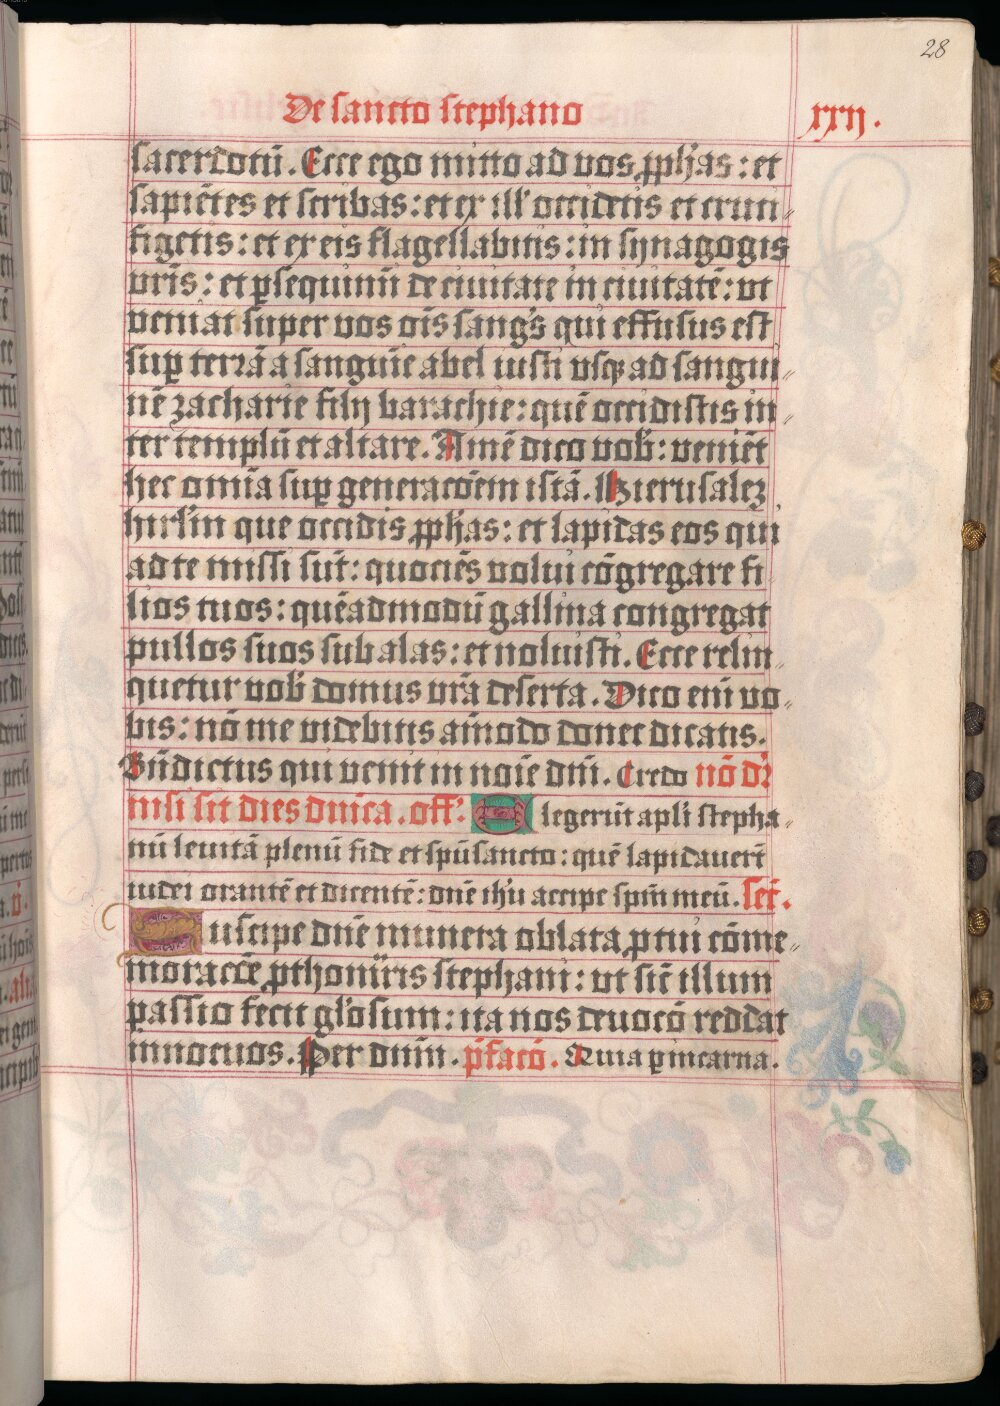 28
De sancto stephano xxxij.
sacerdotū. Ecce ego mitto ad vos ꝓph̄as: et
sapiētes et scribas: et ex ill' occidetis et cruci
figetis: et ex eis flagellabitis: in synagogis
vr̄is: et ꝑsequimī de ciuitate in ciuitatē: vt
veniat super vos oīs sang's qui effusus est
suꝑ terrā a sanguīe abel iusti vsqꝫ ad sangui
nē zacharie filij barachie: quē occidistis in
ter templū et altare. Amē dico vob': veniēt
hec omīa suꝑ generacōem istā. Hierusalez
hirl'm que occidis ꝓph̄as: et lapidas eos qui
ad te missi sūt: quociēs volui cōgregare fi
lios tuos: quēadmodū gallina congregat
pullos suos sub alas: et noluisti. Ecce relin
quetur vob' domus vr̄a deserta. Dico enī vo
bis: nō me videbitis āmodo donec dicatis.
Bn̄dictus qui venit in noīe dnī. Credo nō dr̄
nisi sit dies dnīca. off' Elegerūt apl'i stepha
nū leuitā plenū fide et spū sancto: quē lapidauerūt
iudei orantē et dicentē: dnē ih'u accipe spm̄ meū. scr̄.
Suscipe dnē munera oblata ꝓ tui cōme
moracōe ꝓthomr̄is stephani: vt sic̄ illum
passio fecit gl'osum: ita nos deuocō reddat
innocuos. Per dnm̄. p̄facō. Quia ꝑ incarna.